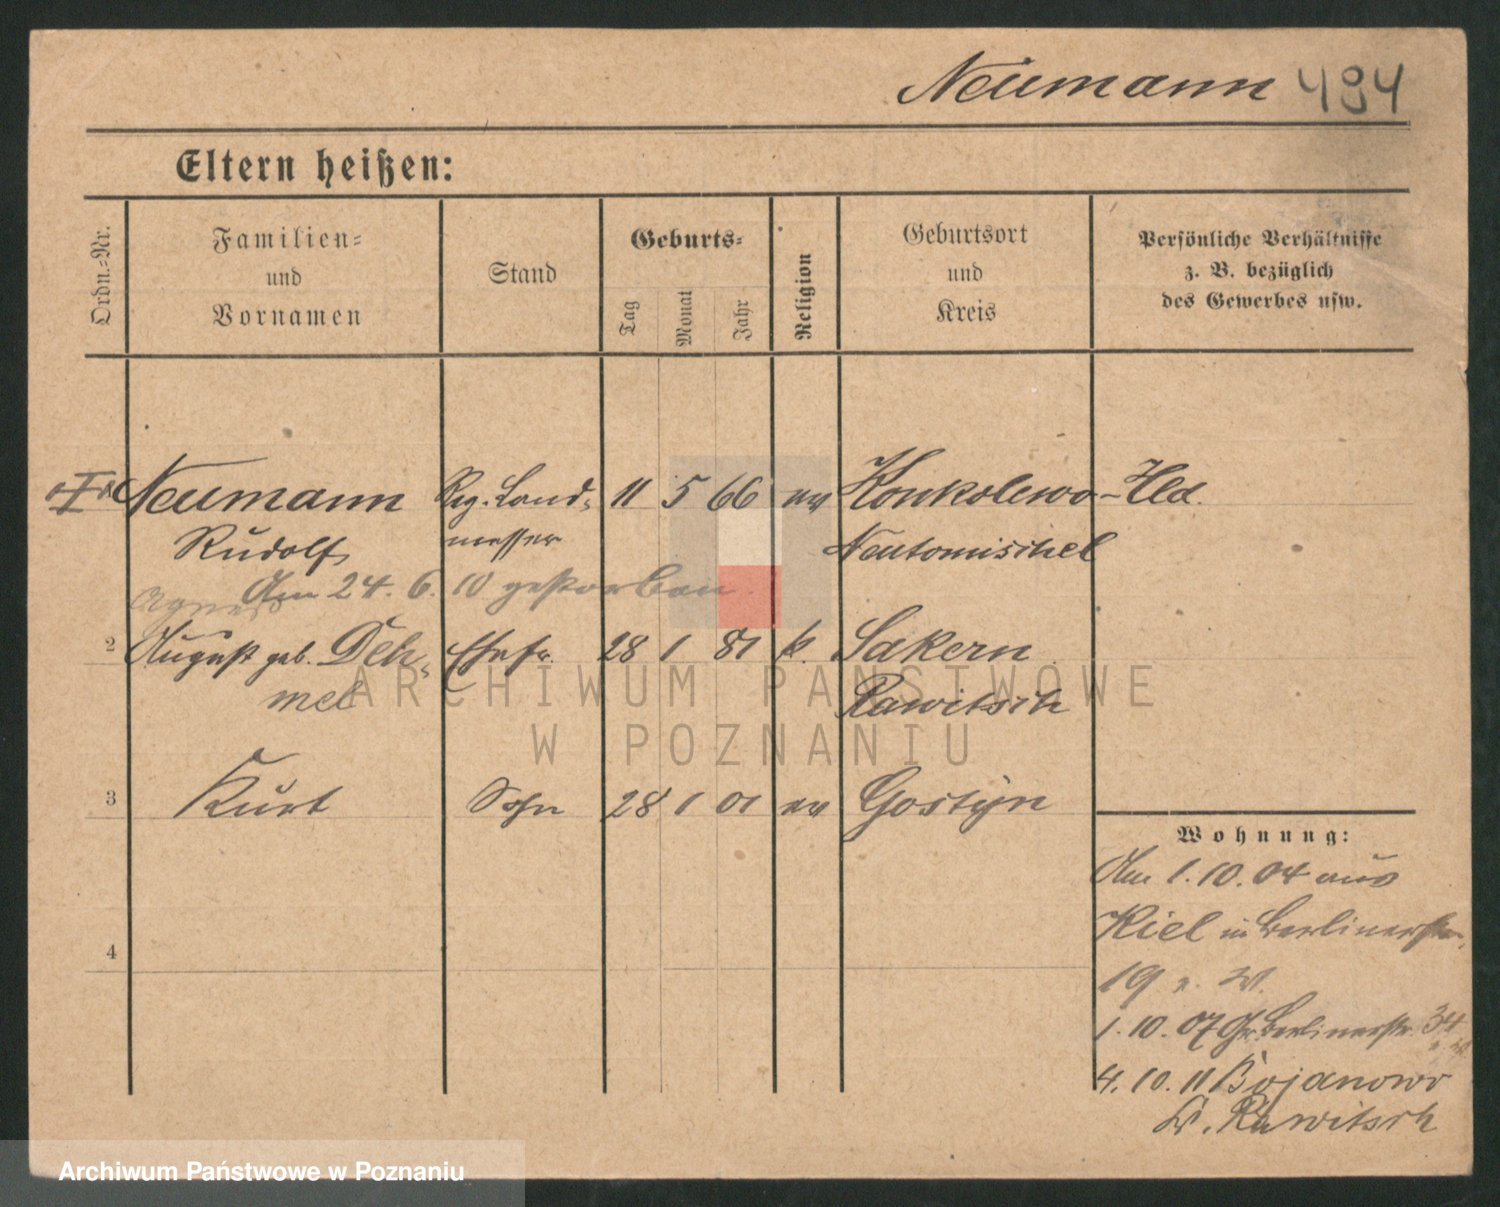 Neumann 494
Eltern heißen:
Ordn.-Nr.
Familien-
und
Vornamen
Stand
Geburts-
Tag
Monat
Jahr
Religion
Geburtsort
und
Kreis
Persönliche Verhältnisse
z. B. bezüglich
des Gewerbes usw.
Neumann Reg. Land- 11 5 66 ev Konkolewo-Hld.
Rudolf messer Neutomischel
Am 24. 6. 10 gestorben.
Agnes
2 August geb. Deh- Ehefr. 28 1 81 k. Sakern
mel Rawitsch
3 Kurt Sohn 28 1 01 ev Gostyn
4
Wohnung:
Am 1.10.04 aus
Kiel in Berlinerstr.
19
1.10.07 Gr. Berlinerstr. 34
4.10.11 Bojanowo
Kr. Rawitsch
ARCHIWUM PAŃSTWOWE
W POZNANIU
Archiwum Państwowe w Poznaniu